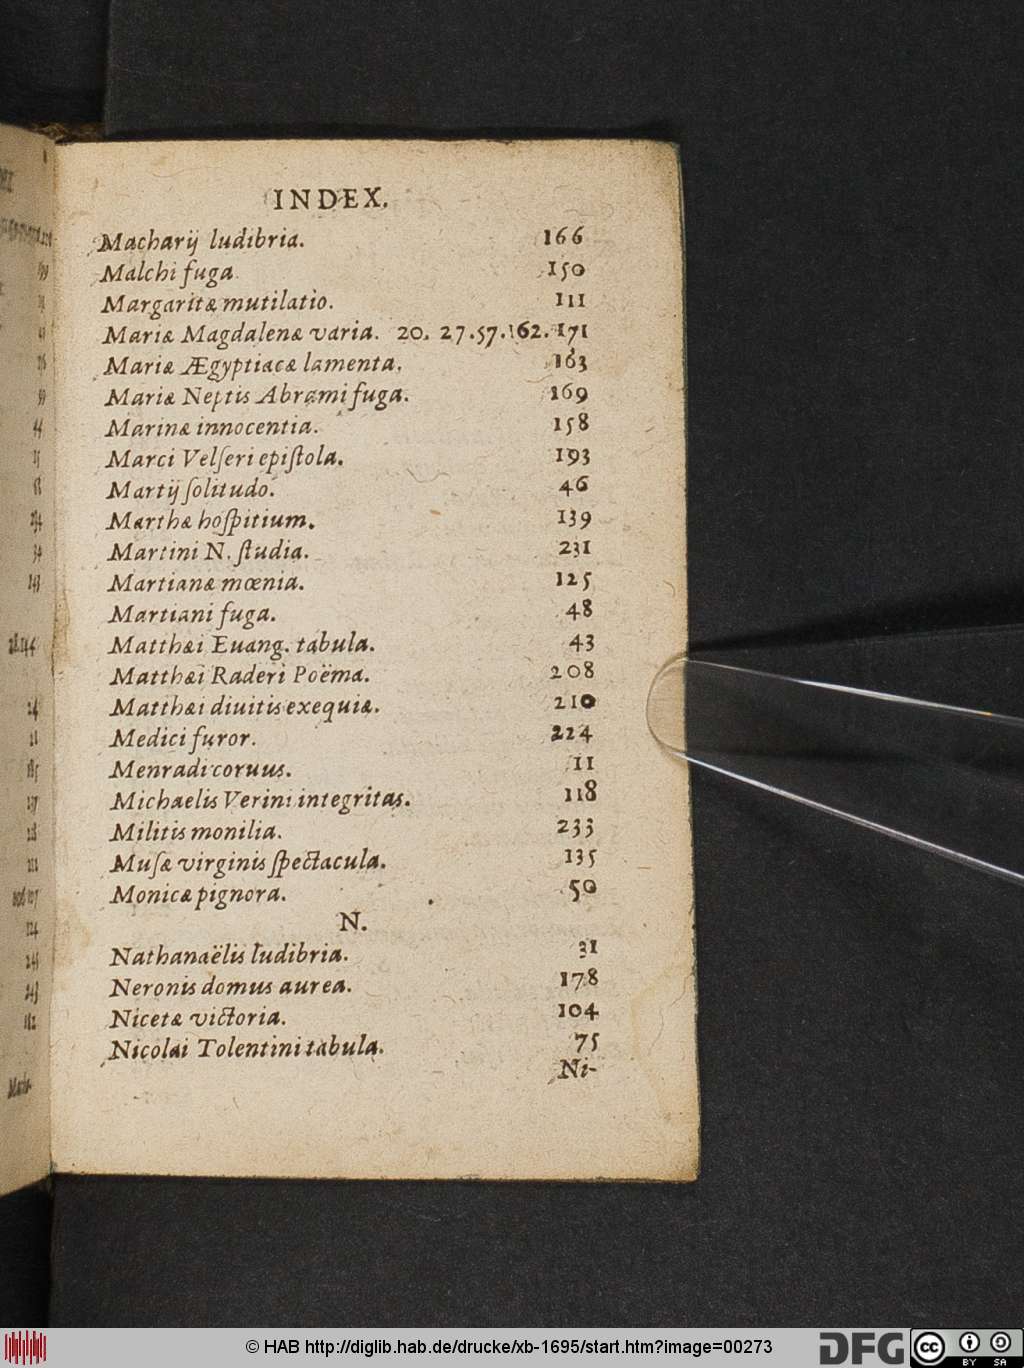 INDEX.
Macharij ludibria. 166
Malchi fuga 150
Margaritæ mutilatio. 111
Mariæ Magdalenæ varia. 20. 27.57.162.171
Mariæ Ægyptiacæ lamenta. 163
Mariæ Neptis Abrami fuga. 169
Marinæ innocentia. 158
Marci Velſeri epiſtola. 193
Martij ſolitudo. 46
Marthæ hoſpitium. 139
Martini N. ſtudia. 231
Martianæ mœnia. 125
Martiani fuga. 48
Matthæi Euang. tabula. 43
Matthæi Raderi Poëma. 208
Matthæi diuitis exequiæ. 210
Medici furor. 224
Menradi coruus. 11
Michaelis Verini integritas. 118
Militis monilia. 233
Muſæ virginis ſpectacula. 135
Monicæ pignora. 50
N.
Nathanaëlis ludibria. 31
Neronis domus aurea. 178
Nicetæ victoria. 104
Nicolai Tolentini tabula. 75
Ni-
© HAB http://diglib.hab.de/drucke/xb-1695/start.htm?image=00273
DFG
cc BY SA